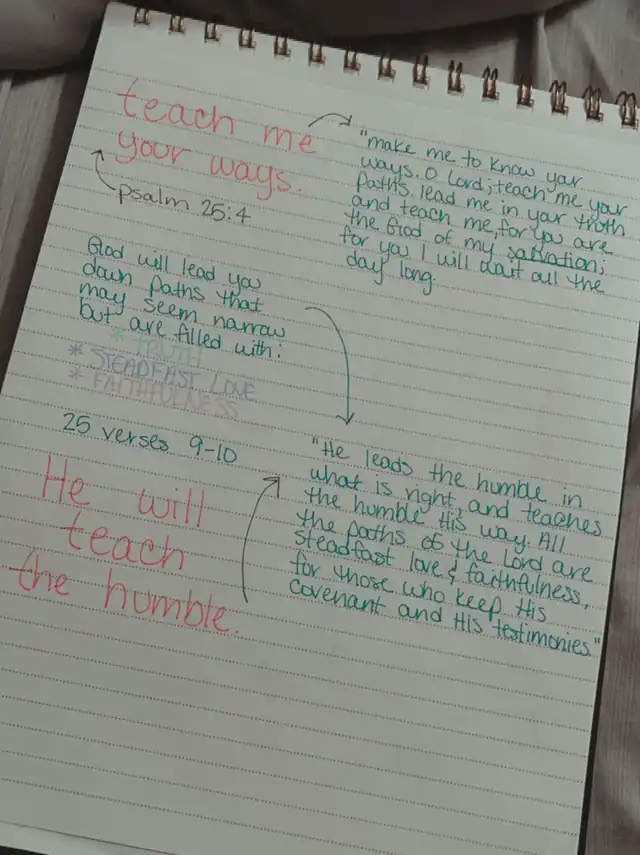 teach me
your ways.
psalm 25:4
"make me to know your
ways, O Lord; teach me your
paths. lead me in your truth
and teach me, for you are
the God of my salvation;
for you I will wait all the
day long.
God will lead you
down paths that
may seem narrow
but are filled with:
* TRUTH
* STEADFAST LOVE
* FAITHFULNESS
25 verses 9-10
"He leads the humble in
what is right, and teaches
the humble His way. All
the paths of the Lord are
steadfast love & faithfulness,
for those who keep His
covenant and His testimonies"
He will
teach
the humble.